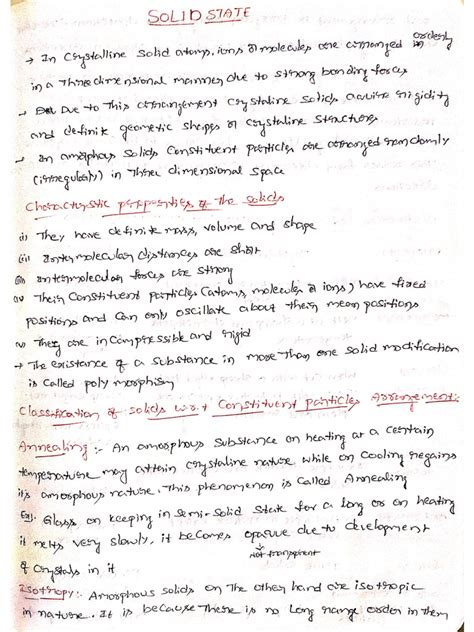 SOLID STATE
→ In Crystalline Solid atoms, ions or molecules are arranged orderly
in a Three dimensional manner due to strong bonding forces
→ Due to This arrangement Crystaline Solids acuire rigidity
and definite geometric shapes or Crystaline Structures
→ In amorphous Solids Constituent particles are arranged randomly
(irregularly) in Three dimensional space
Characteristic properties of The Solids
(i) They have definite mass, volume and shape
(ii) Intermolecular distances are short
(iii) Intermolecular forces are strong
(iv) Their Constituent particles (atoms, molecules or ions) have fixed
positions and Can only oscillate about their mean positions
(v) They are incompressible and rigid
→ The existance of a Substance in more than one solid modification
is Called poly morphism
Classification of solids w.r.t Constituent particles Arrangement:-
Annealing:- An amorphous Substance on heating at a Certain
temperature may attain crystaline nature, while on Cooling regains
its amorphous nature. This phenomenon is Called Annealing
Eg). Glass on keeping in Semi-Solid state for a long or on heating
it melts very slowly, it becomes opaque due to development
Not transparent
of Crystals in it
Isotropy:- Amorphous solids on The other hand are isotropic
in nature. It is because There is no Long range order in them